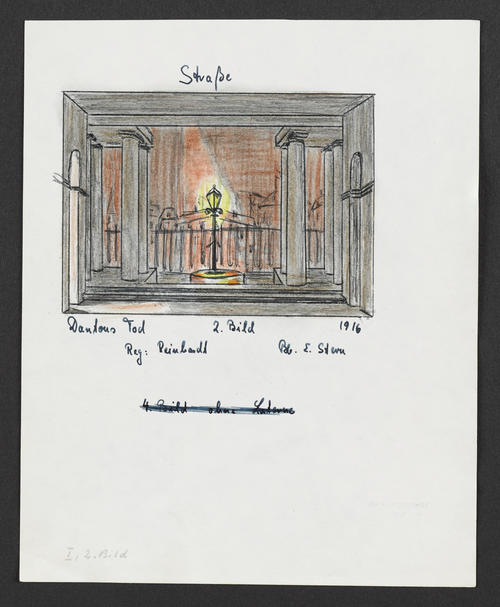 Straße
Dantons Tod 2. Bild 1916
Reg: Reinhardt Bb. E. Stern
4. Bild ohne Laterne
I, 2. Bild